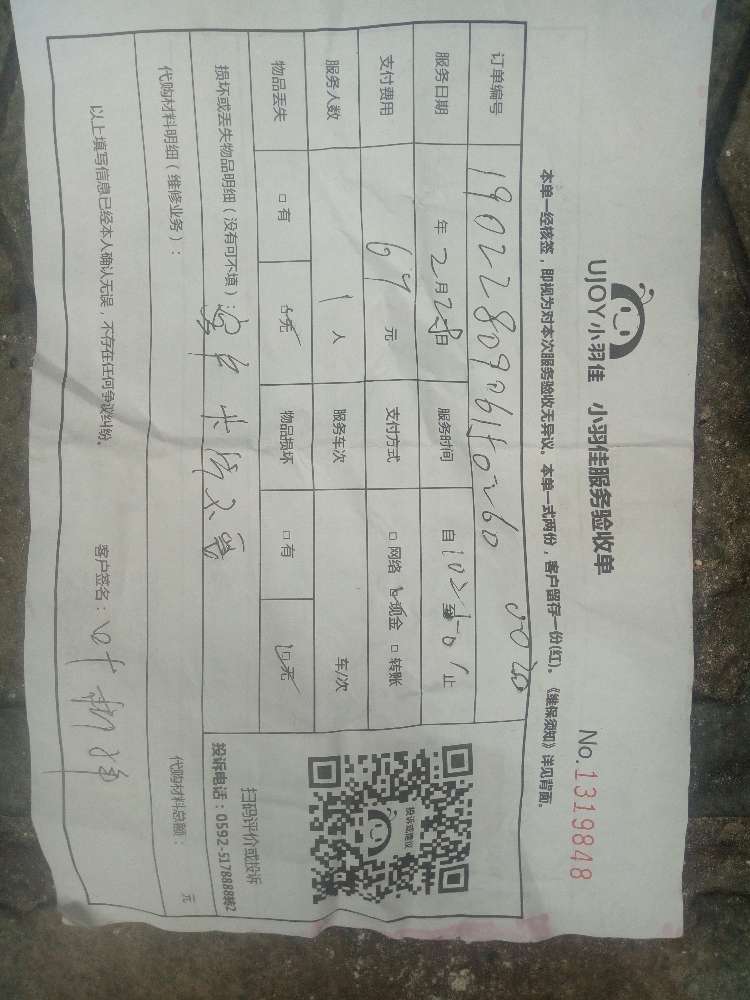 UJOY小羽佳 小羽佳服务验收单
No.1319848
本单一经核签，即视为对本次服务验收无异议。本单一式两份，客户留存一份(红)。《维保须知》详见背面。
订单编号
服务日期 年 2月28日 服务时间 自 至 止
支付费用 67 元 支付方式 □网络 □现金 □转账
服务人数 1 人 服务车次 车/次
物品丢失 □有 □无 物品损坏 □有 □无
损坏或丢失物品明细（没有可不填）：
代购材料明细（维修业务）： 代购材料总额： 元
以上填写信息已经本人确认无误，不存在任何争议纠纷。 客户签名：
投诉或建议
扫码评价或投诉
投诉电话：0592-5178888转2